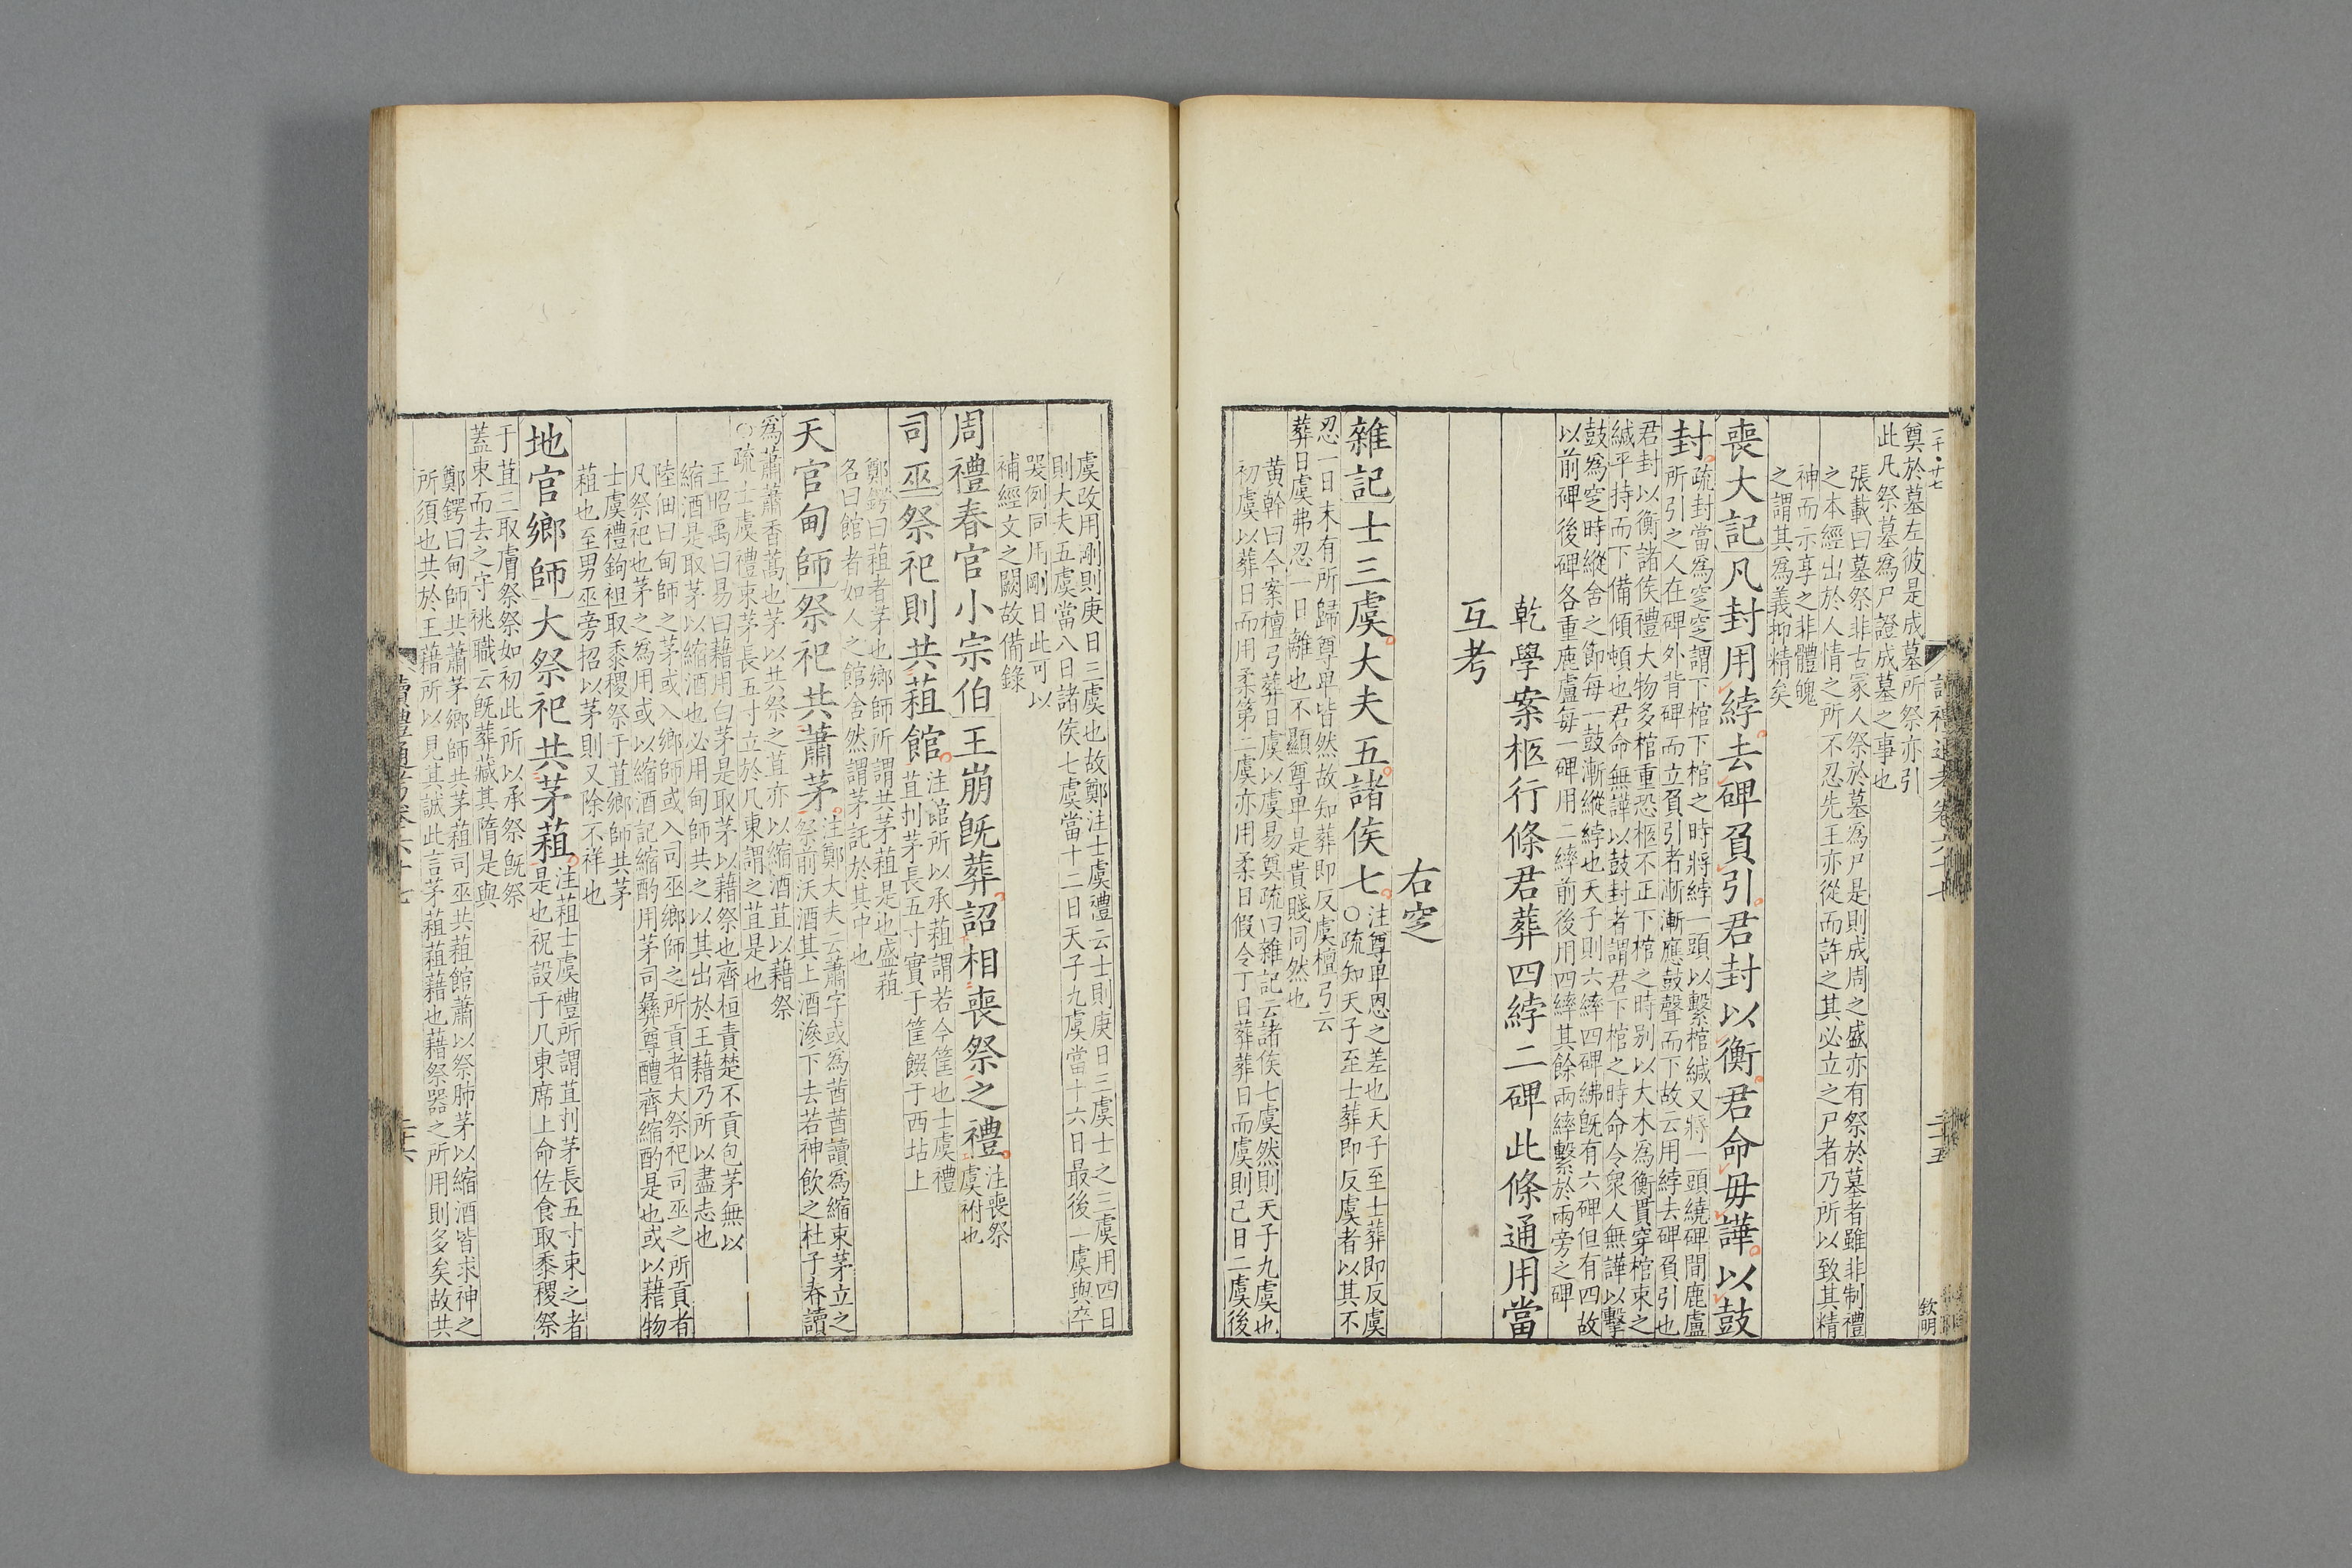 一千·廿七
讀禮通考卷六十七
二十五
欽明
奠於墓左彼是成墓所祭亦引
此凡祭墓爲尸證成墓之事也
張載曰墓祭非古冢人祭於墓爲尸是則成周之盛亦有祭於墓者雖非制禮
之本經出於人情之所不忍先王亦從而許之其必立之尸者乃所以致其精
神而示享之非體魄
之謂其爲義抑精矣
喪大記凡封用綍去碑負引君封以衡君命毋譁以鼓
封
疏封當爲窆窆謂下棺下棺之時將綍一頭以繫棺緘又將一頭繞碑間鹿盧
所引之人在碑外背碑而立負引者漸漸應鼓聲而下故云用綍去碑負引也
君封以衡諸侯禮大物多棺重恐柩不正下棺之時别以大木爲衡貫穿棺束之
緘平持而下備傾頓也君命無譁以鼓封者謂君下棺之時命令衆人無譁以擊
鼓爲窆時縱舍之節每一鼓漸縱綍也天子則六繂四碑紼旣有六碑但有四故
以前碑後碑各重鹿盧每一碑用二繂前後用四繂其餘兩繂繫於兩旁之碑
乾學案柩行條君葬四綍二碑此條通用當
互考
右窆
雜記士三虞大夫五諸侯七
注尊卑恩之差也天子至士葬即反虞
○疏知天子至士葬即反虞者以其不
忍一日末有所歸尊卑皆然故知葬即反虞檀弓云
葬日虞弗忍一日離也不顯尊卑是貴賤同然也
黄幹曰今案檀弓葬日虞以虞易奠疏曰雜記云諸侯七虞然則天子九虞也
初虞以葬日而用柔第二虞亦用柔日假令丁日葬葬日而虞則己日二虞後
虞改用剛則庚日三虞也故鄭注士虞禮云士則庚日三虞士之三虞用四日
則大夫五虞當八日諸侯七虞當十二日天子九虞當十六日最後一虞與卒
哭例同用剛日此可以
補經文之闕故備錄
周禮春官小宗伯王崩旣葬詔相喪祭之禮
注喪祭
虞祔也
司巫祭祀則共蒩館
注館所以承蒩謂若今筐也士虞禮
苴刌茅長五寸實于筐饌于西坫上
鄭鍔曰蒩者茅也鄉師所謂共茅蒩是也盛蒩
名曰館者如人之館舍然謂茅託於其中也
天官甸師祭祀共蕭茅
注鄭大夫云蕭字或爲茜茜讀爲縮束茅立之
祭前沃酒其上酒滲下去若神飲之杜子春讀
爲蕭蕭香蒿也茅以共祭之苴亦以縮酒苴以藉祭
○疏士虞禮束茅長五寸立於几東謂之苴是也
王昭禹曰易曰藉用白茅是取茅以藉祭也齊桓責楚不貢包茅無以
縮酒是取茅以縮酒也必用甸師共之以其出於王藉乃所以盡志也
陸佃曰甸師之茅或入鄉師或入司巫鄉師之所貢者大祭祀司巫之所貢者
凡祭祀也茅之爲用或以縮酒記縮酌用茅司彝尊醴齊縮酌是也或以藉物
士虞禮鉤袒取黍稷祭于苴鄉師共茅
蒩也至男巫旁招以茅則又除不祥也
地官鄉師大祭祀共茅蒩
注蒩士虞禮所謂苴刌茅長五寸束之者
是也祝設于几東席上命佐食取黍稷祭
于苴三取膚祭祭如初此所以承祭旣祭
蓋束而去之守祧職云旣葬藏其隋是與
鄭鍔曰甸師共蕭茅鄉師共茅蒩司巫共蒩館蕭以祭肺茅以縮酒皆求神之
所須也共於王藉所以見其誠此言茅蒩蒩藉也藉祭器之所用則多矣故共
讀禮通考卷六十七
二十六